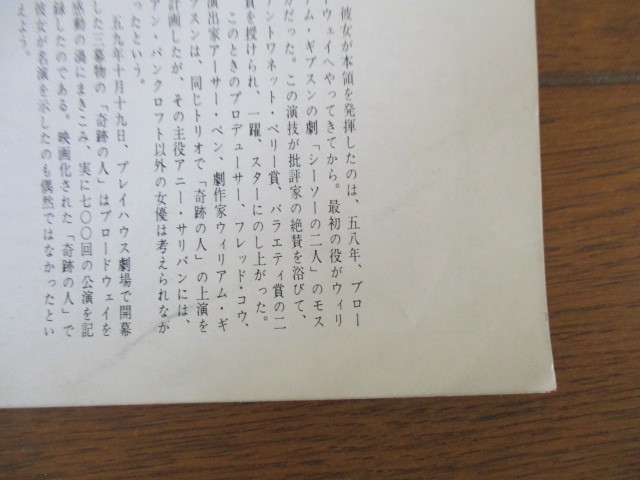 彼女が本領を発揮したのは、五八年、ブロー
ドウェイへやってきてから。最初の役がウィリ
アム・ギブスンの劇「シーソーの二人」のモス
だった。この演技が批評家の絶賛を浴びて、
ントワネット・ペリー賞、バラエティ賞の二
賞を授けられ、一躍、スターにのし上がった。
このときのプロデューサー、フレッド・コウ、
演出家アーサー・ペン、劇作家ウィリアム・ギ
ブスンは、同じトリオで「奇跡の人」の上演を
計画したが、その主役アニー・サリバンには、
アン・バンクロフト以外の女優は考えられなか
ったという。
五九年十月十九日、プレイハウス劇場で開幕
した三幕物の「奇跡の人」はブロードウェイを
感動の渦にまきこみ、実に七〇〇回の公演を記
録したのである。映画化された「奇跡の人」で
彼女が名演を示したのも偶然ではなかったとい
えよう。